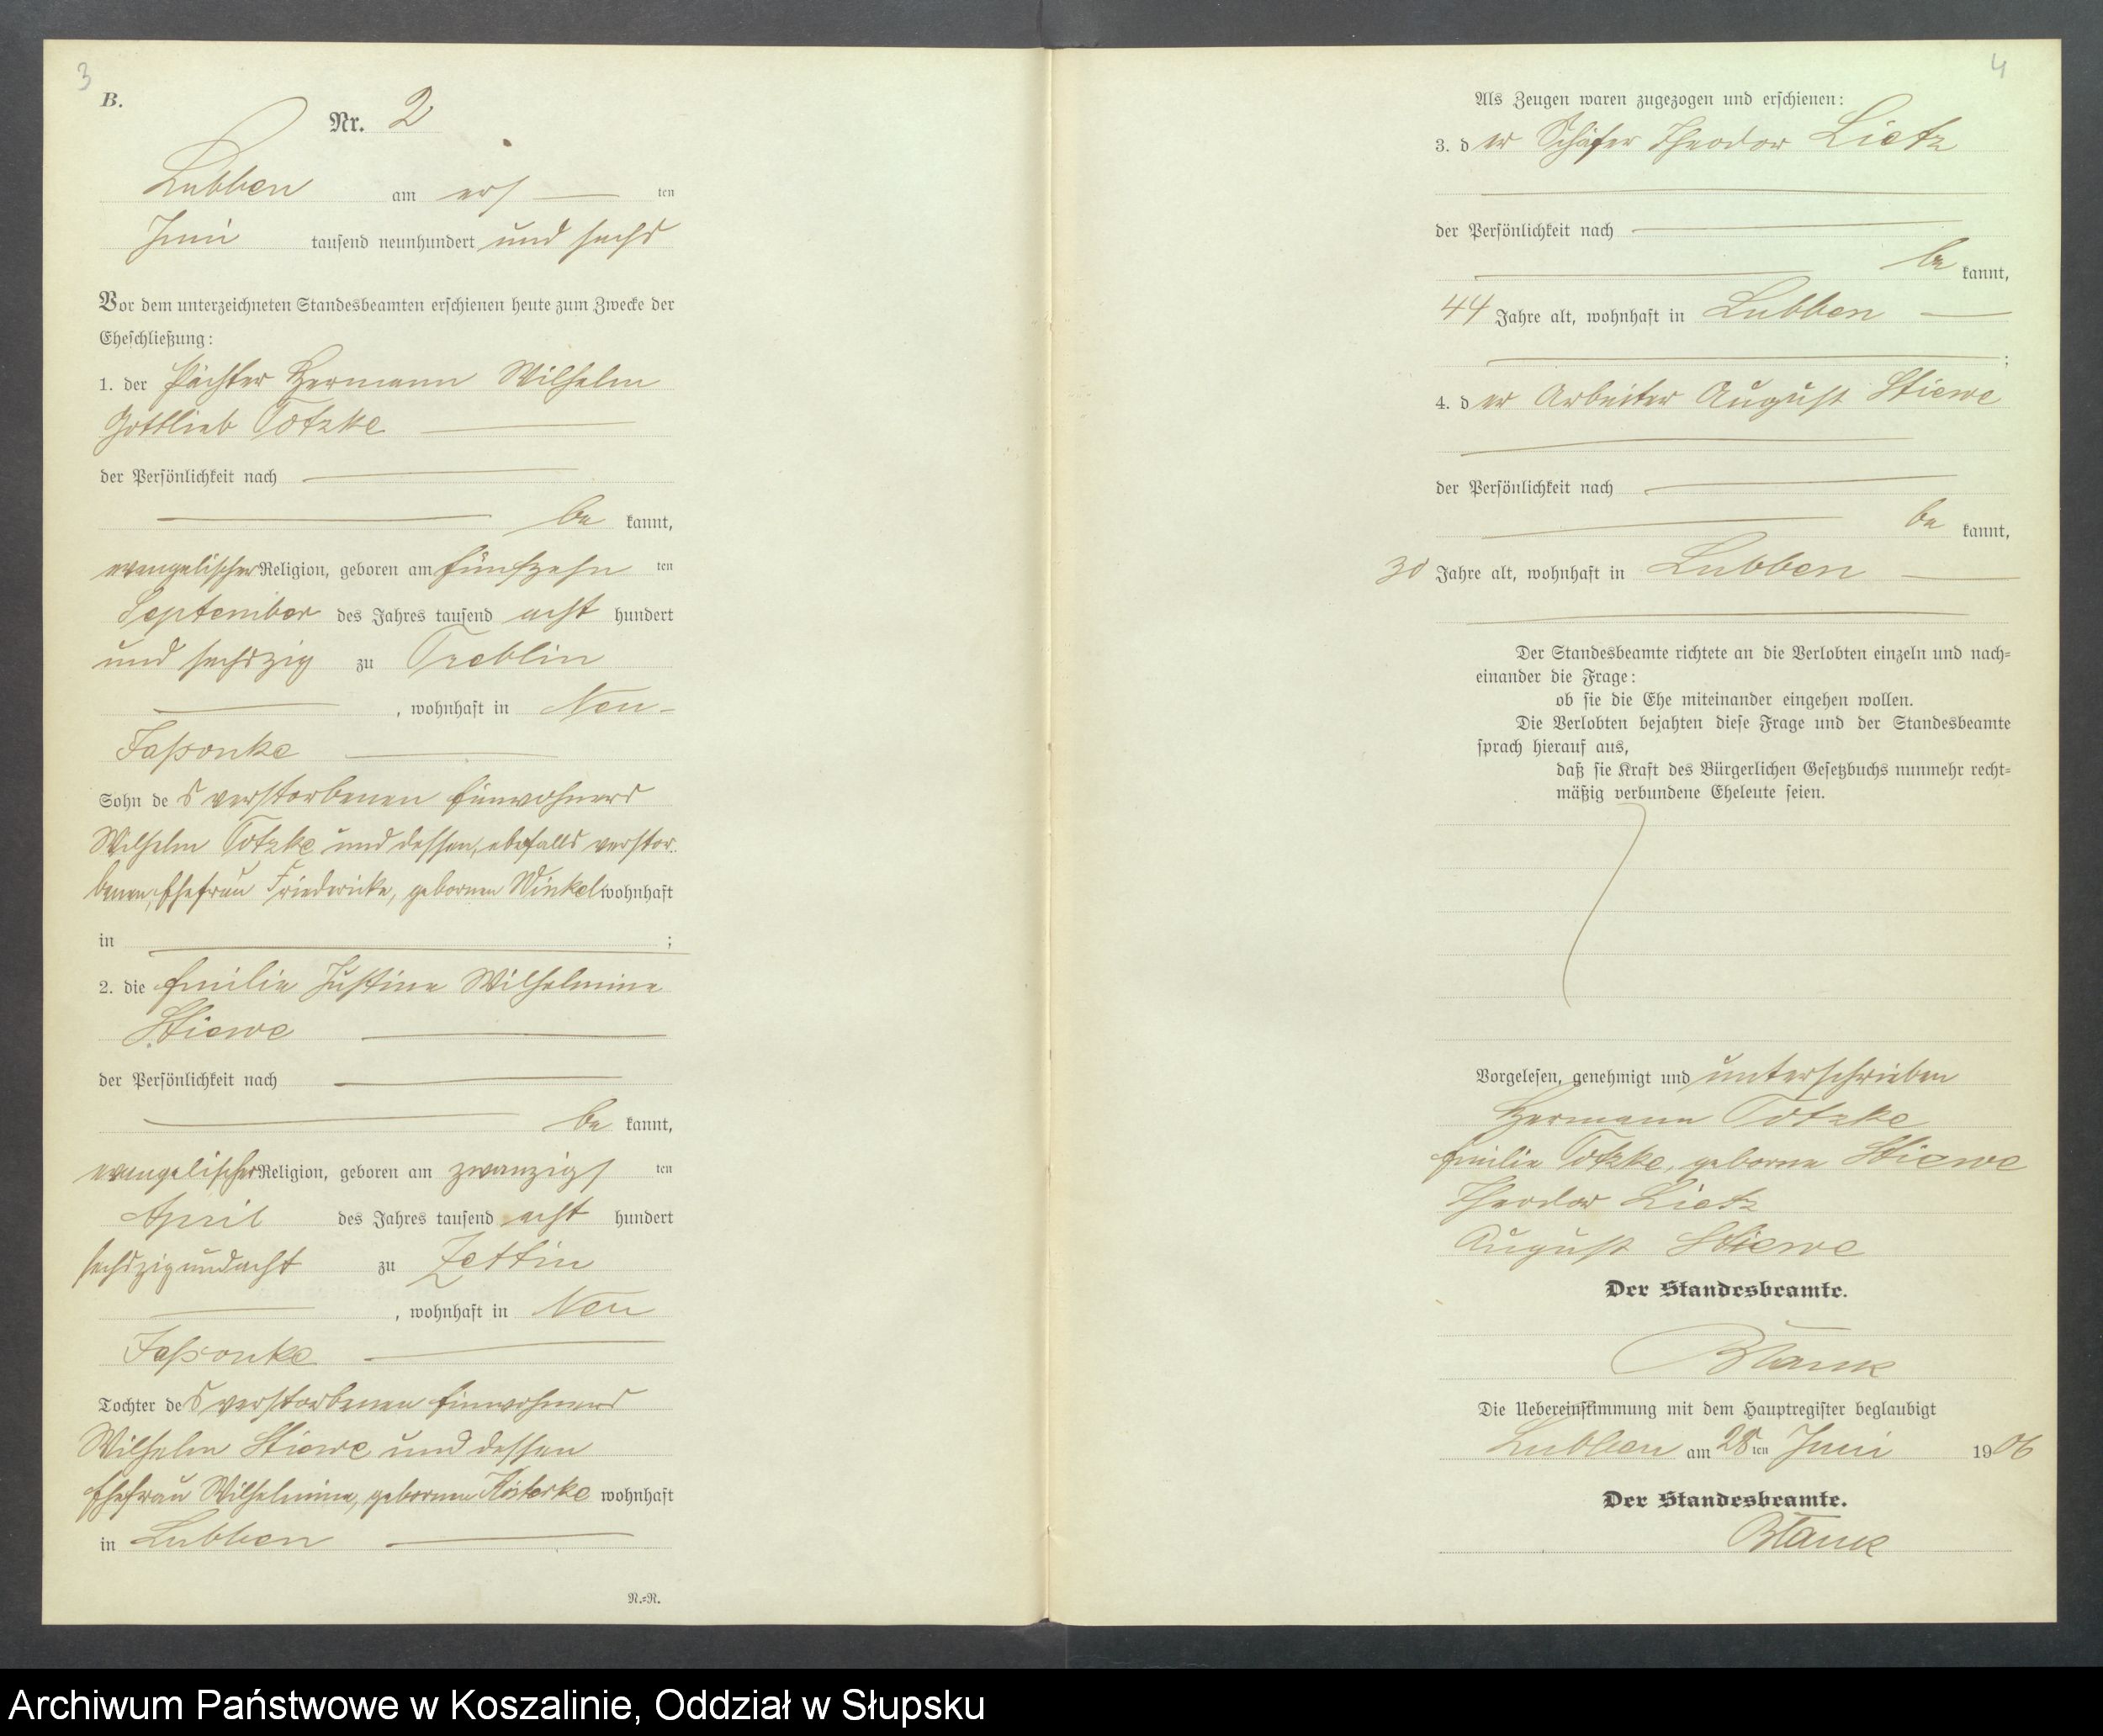 3
B.
Nr. 2
Lubben am ers ten
Juni tausend neunhundert und sechs
Vor dem unterzeichneten Standesbeamten erschienen heute zum Zwecke der
Eheschließung:
1. der Pächter Hermann Wilhelm
Gottlieb Totzke
der Persönlichkeit nach
be kannt,
evangelischer Religion, geboren am fünfzehn ten
September des Jahres tausend acht hundert
und sechszig zu Treblin
, wohnhaft in Neu-
Jassonke
Sohn des verstorbenen Einwohners
Wilhelm Totzke und dessen, ebenfalls verstor-
benen, Ehefrau Friedericke, gebornen Winkel wohnhaft
in ;
2. die Emilie Justine Wilhelmine
Stiewe
der Persönlichkeit nach
be kannt,
evangelischer Religion, geboren am zwanzigs ten
April des Jahres tausend acht hundert
sechszigundacht zu Zettin
, wohnhaft in Neu
Jassonke
Tochter des verstorbenen Einwohners
Wilhelm Stiewe und dessen
Ehefrau Wilhelmine, gebornen wohnhaft
in Lubben
N.=R.
4
Als Zeugen waren zugezogen und erschienen:
3. der Schäfer Theodor Lietz
der Persönlichkeit nach
be kannt,
44 Jahre alt, wohnhaft in Lubben
;
4. der Arbeiter August Stiewe
der Persönlichkeit nach
be kannt,
30 Jahre alt, wohnhaft in Lubben
Der Standesbeamte richtete an die Verlobten einzeln und nach=
einander die Frage:
ob sie die Ehe miteinander eingehen wollen.
Die Verlobten bejahten diese Frage und der Standesbeamte
sprach hierauf aus,
daß sie Kraft des Bürgerlichen Gesetzbuchs nunmehr recht=
mäßig verbundene Eheleute seien.
Vorgelesen, genehmigt und unterschrieben
Hermann Totzke
Emilie Totzke, geborne Stiewe
Theodor Lietz
August Stiewe
Der Standesbeamte.
Blanck
Die Uebereinstimmung mit dem Hauptregister beglaubigt
Lubben am 28ten Juni 1906
Der Standesbeamte.
Blanck
Archiwum Państwowe w Koszalinie, Oddział w Słupsku